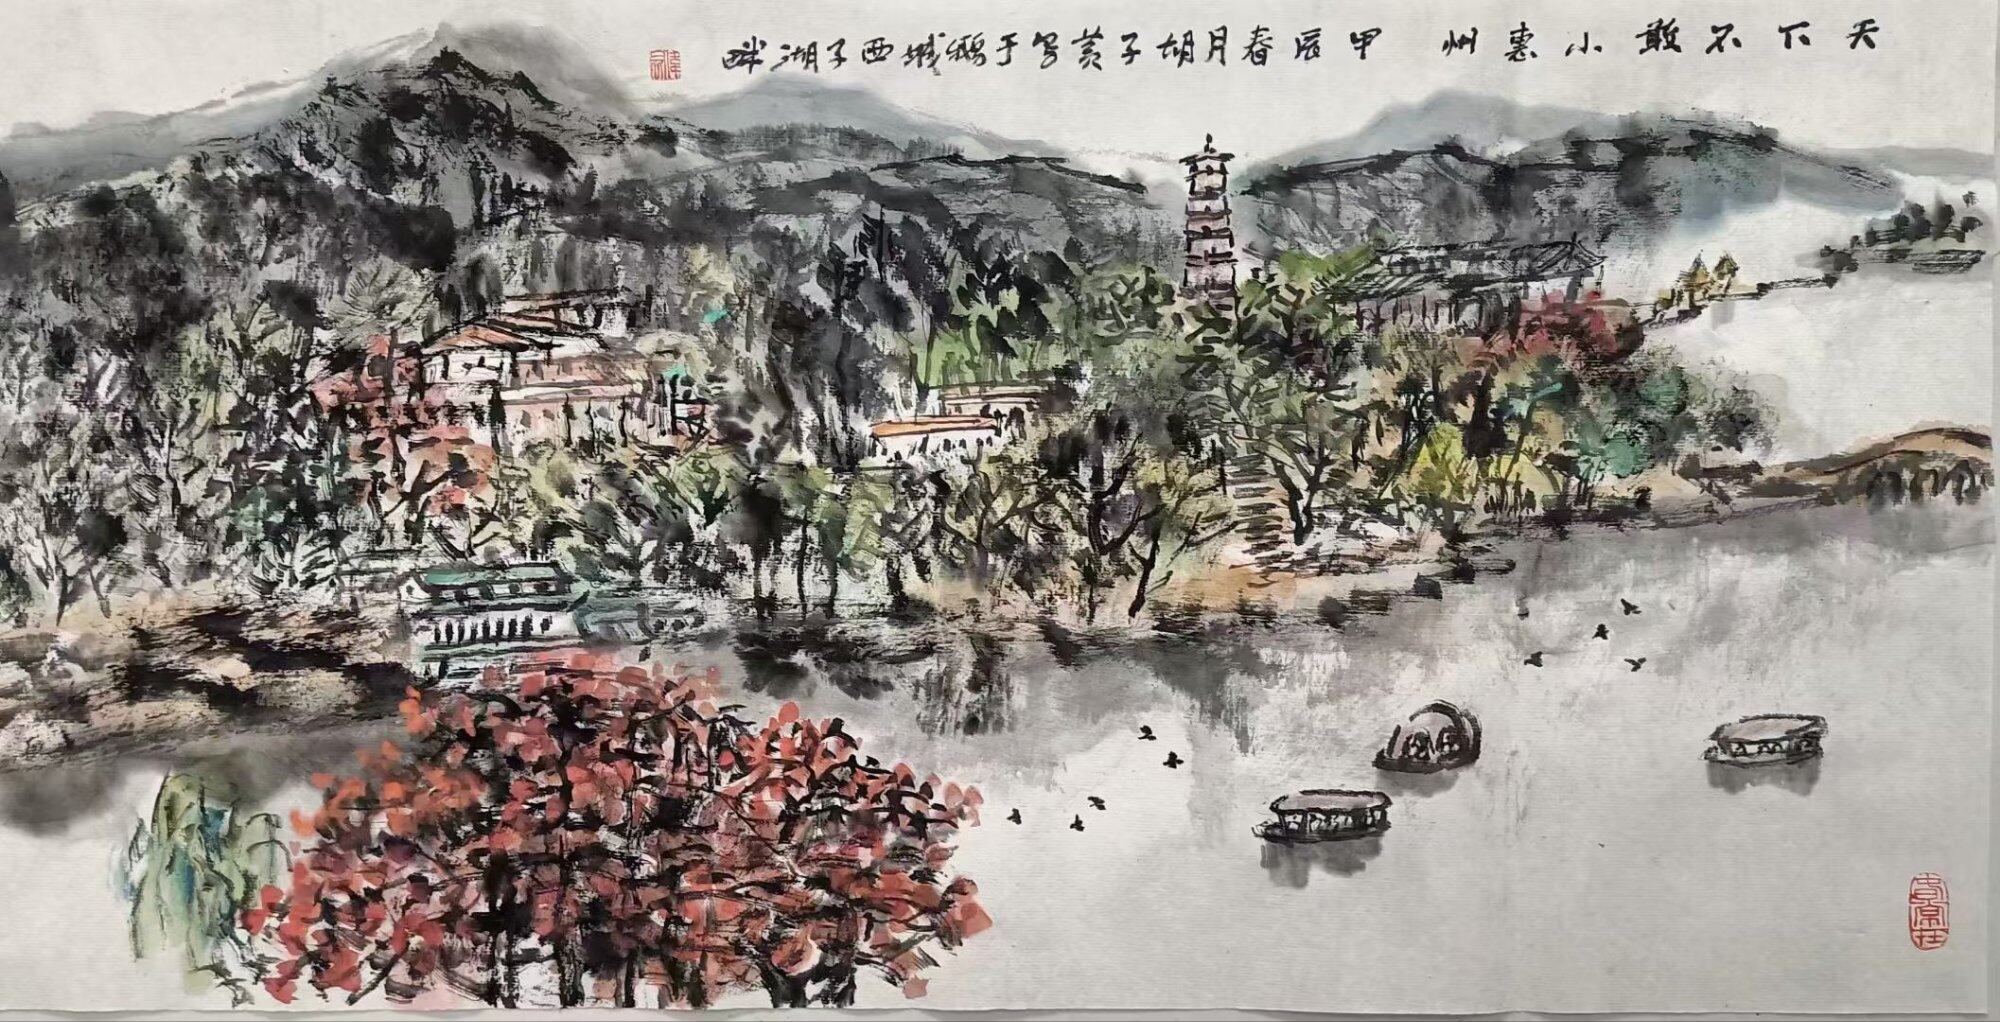 天下不敢小惠州 甲辰春月胡子黄写于鹅城西子湖畔